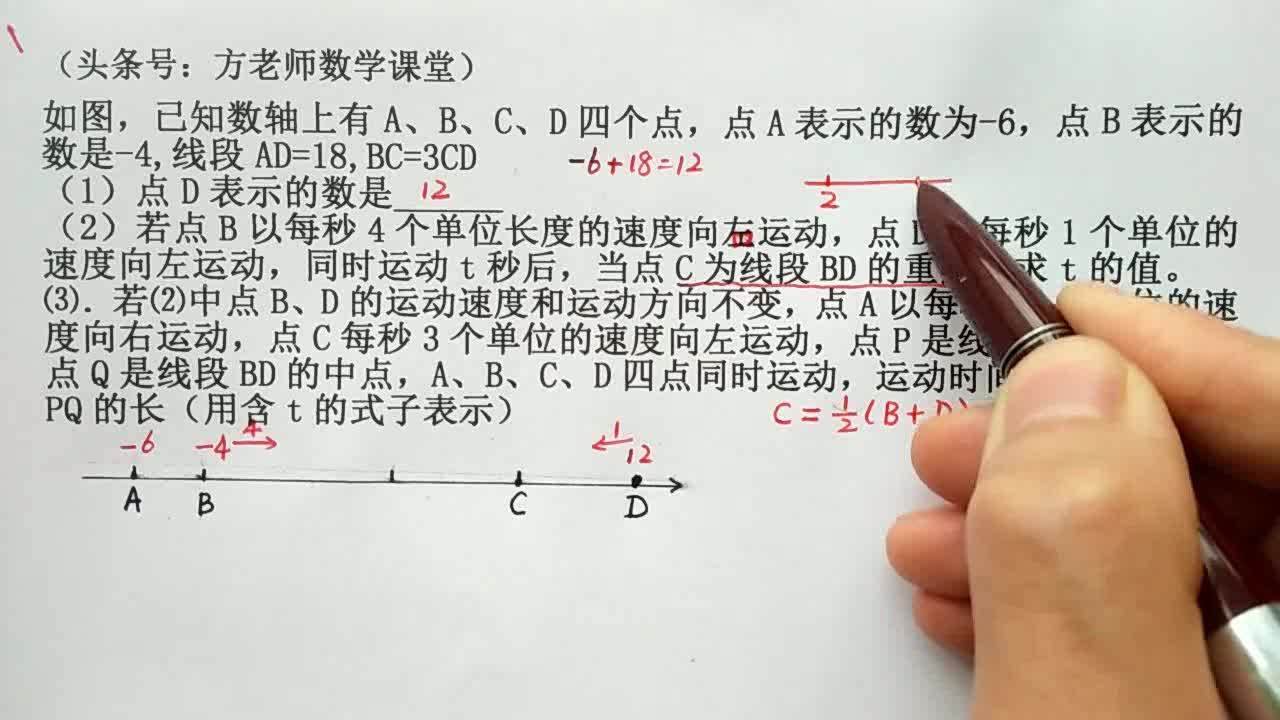 （头条号：方老师数学课堂）
如图，已知数轴上有 A、B、C、D 四个点，点 A 表示的数为-6，点 B 表示的
数是-4,线段 AD=18,BC=3CD -6+18=12
（1）点 D 表示的数是 12
2
（2）若点 B 以每秒 4 个单位长度的速度向左运动，点 每秒 1 个单位的
速度向左运动，同时运动 t 秒后，当点 C 为线段 BD 的重 求 t 的值。
⑶. 若⑵中点 B、D 的运动速度和运动方向不变，点 A 以每 位的速
度向右运动，点 C 每秒 3 个单位的速度向左运动，点 P 是线
点 Q 是线段 BD 的中点，A、B、C、D 四点同时运动，运动时间
PQ 的长（用含 t 的式子表示） C = 1/2 (B+D)
-6 -4 4 1 12
A B C D